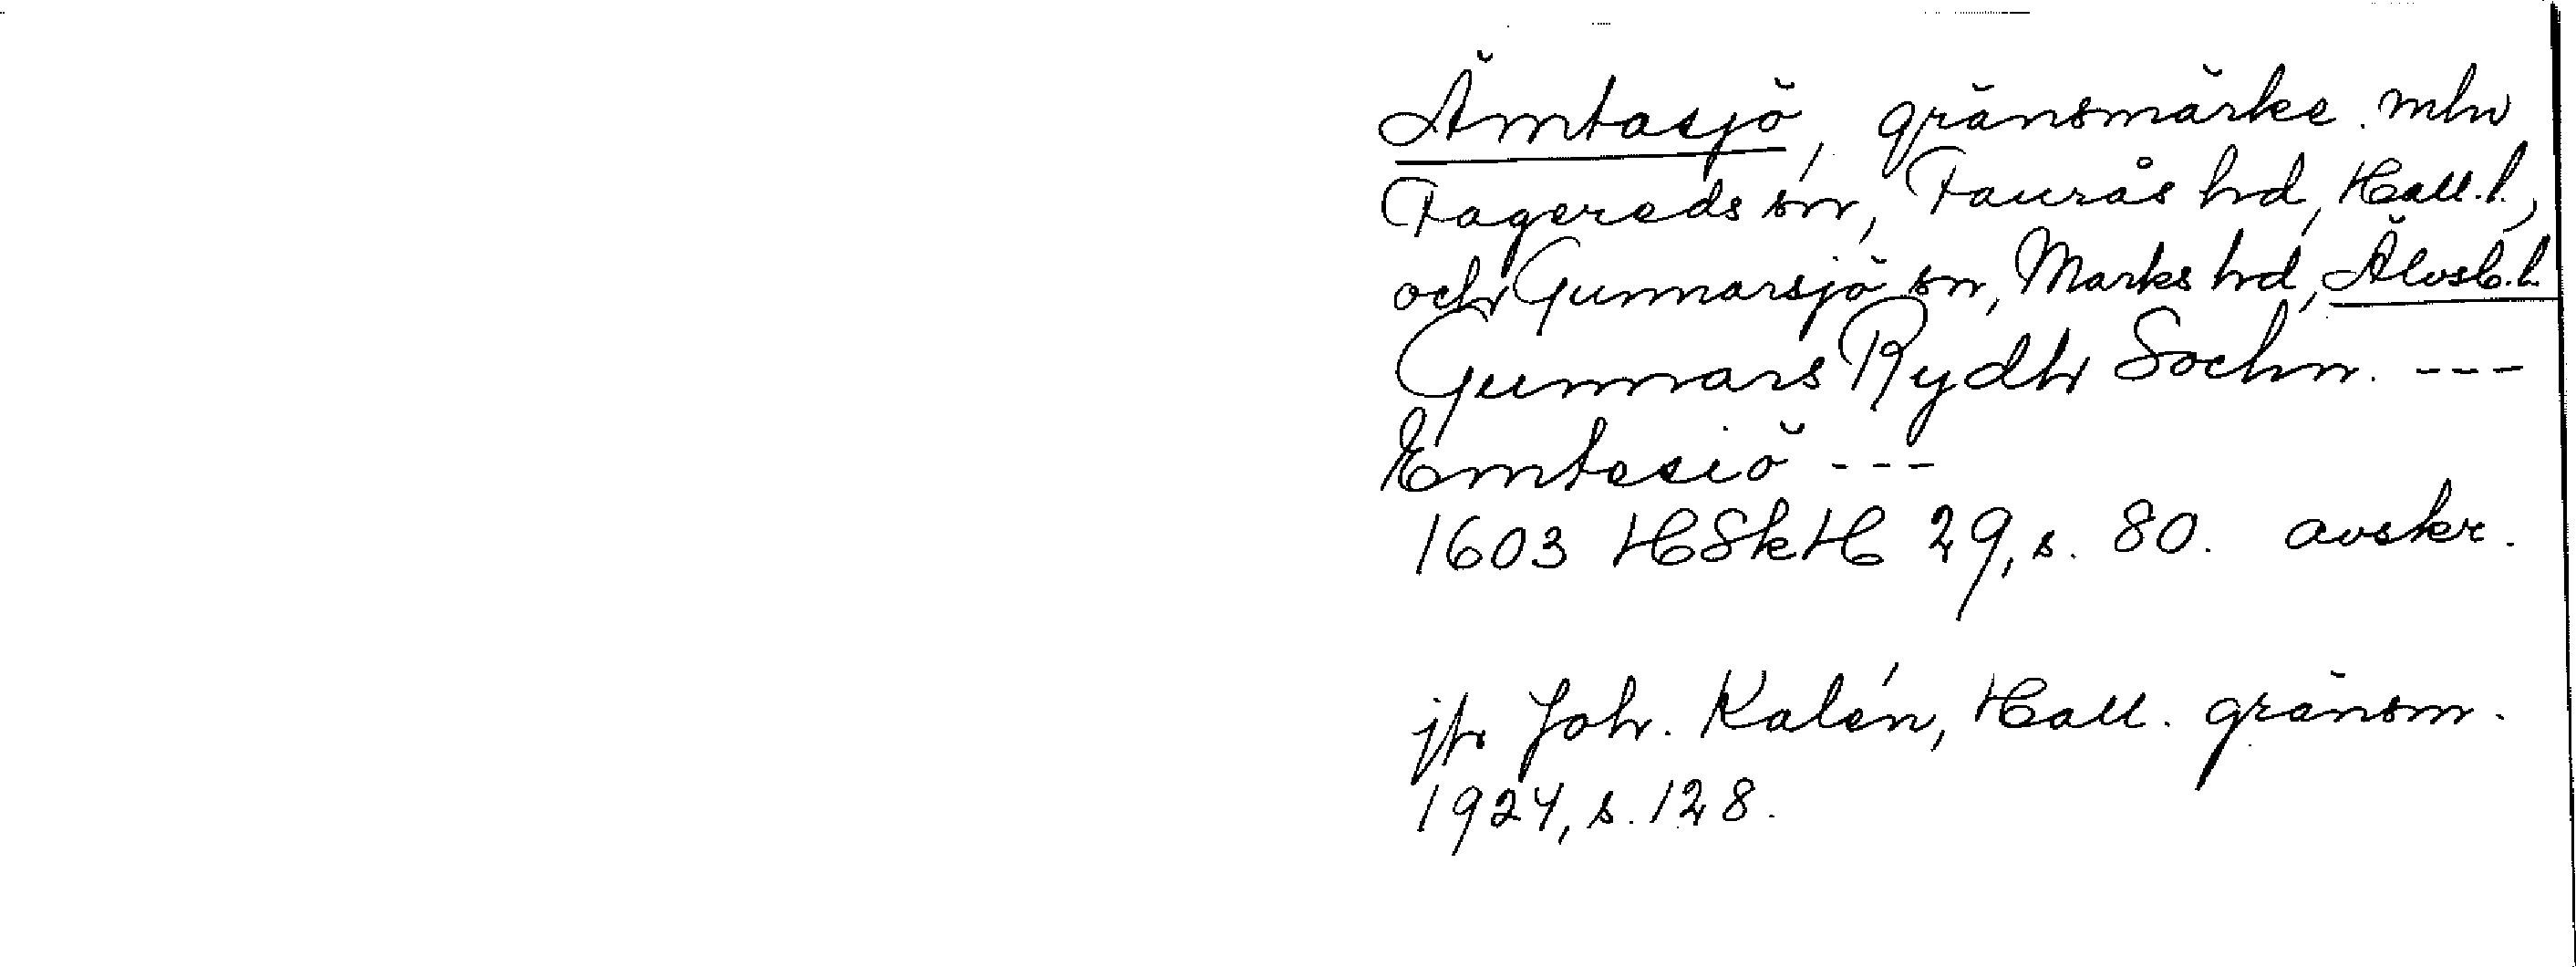 Ämtasjö, gränsmärke mln
Fagereds sn, Faurås hd, Hall. l.,
och Gunnarsjö sn, Marks hd, Älvsb. l.
Gunnars Rydh Sochn. ---
Emtasiö ---
1603 HSkH 29, s. 80. avskr.
jfr Joh. Kalén, Hall. gränsm.
1924, s. 128.